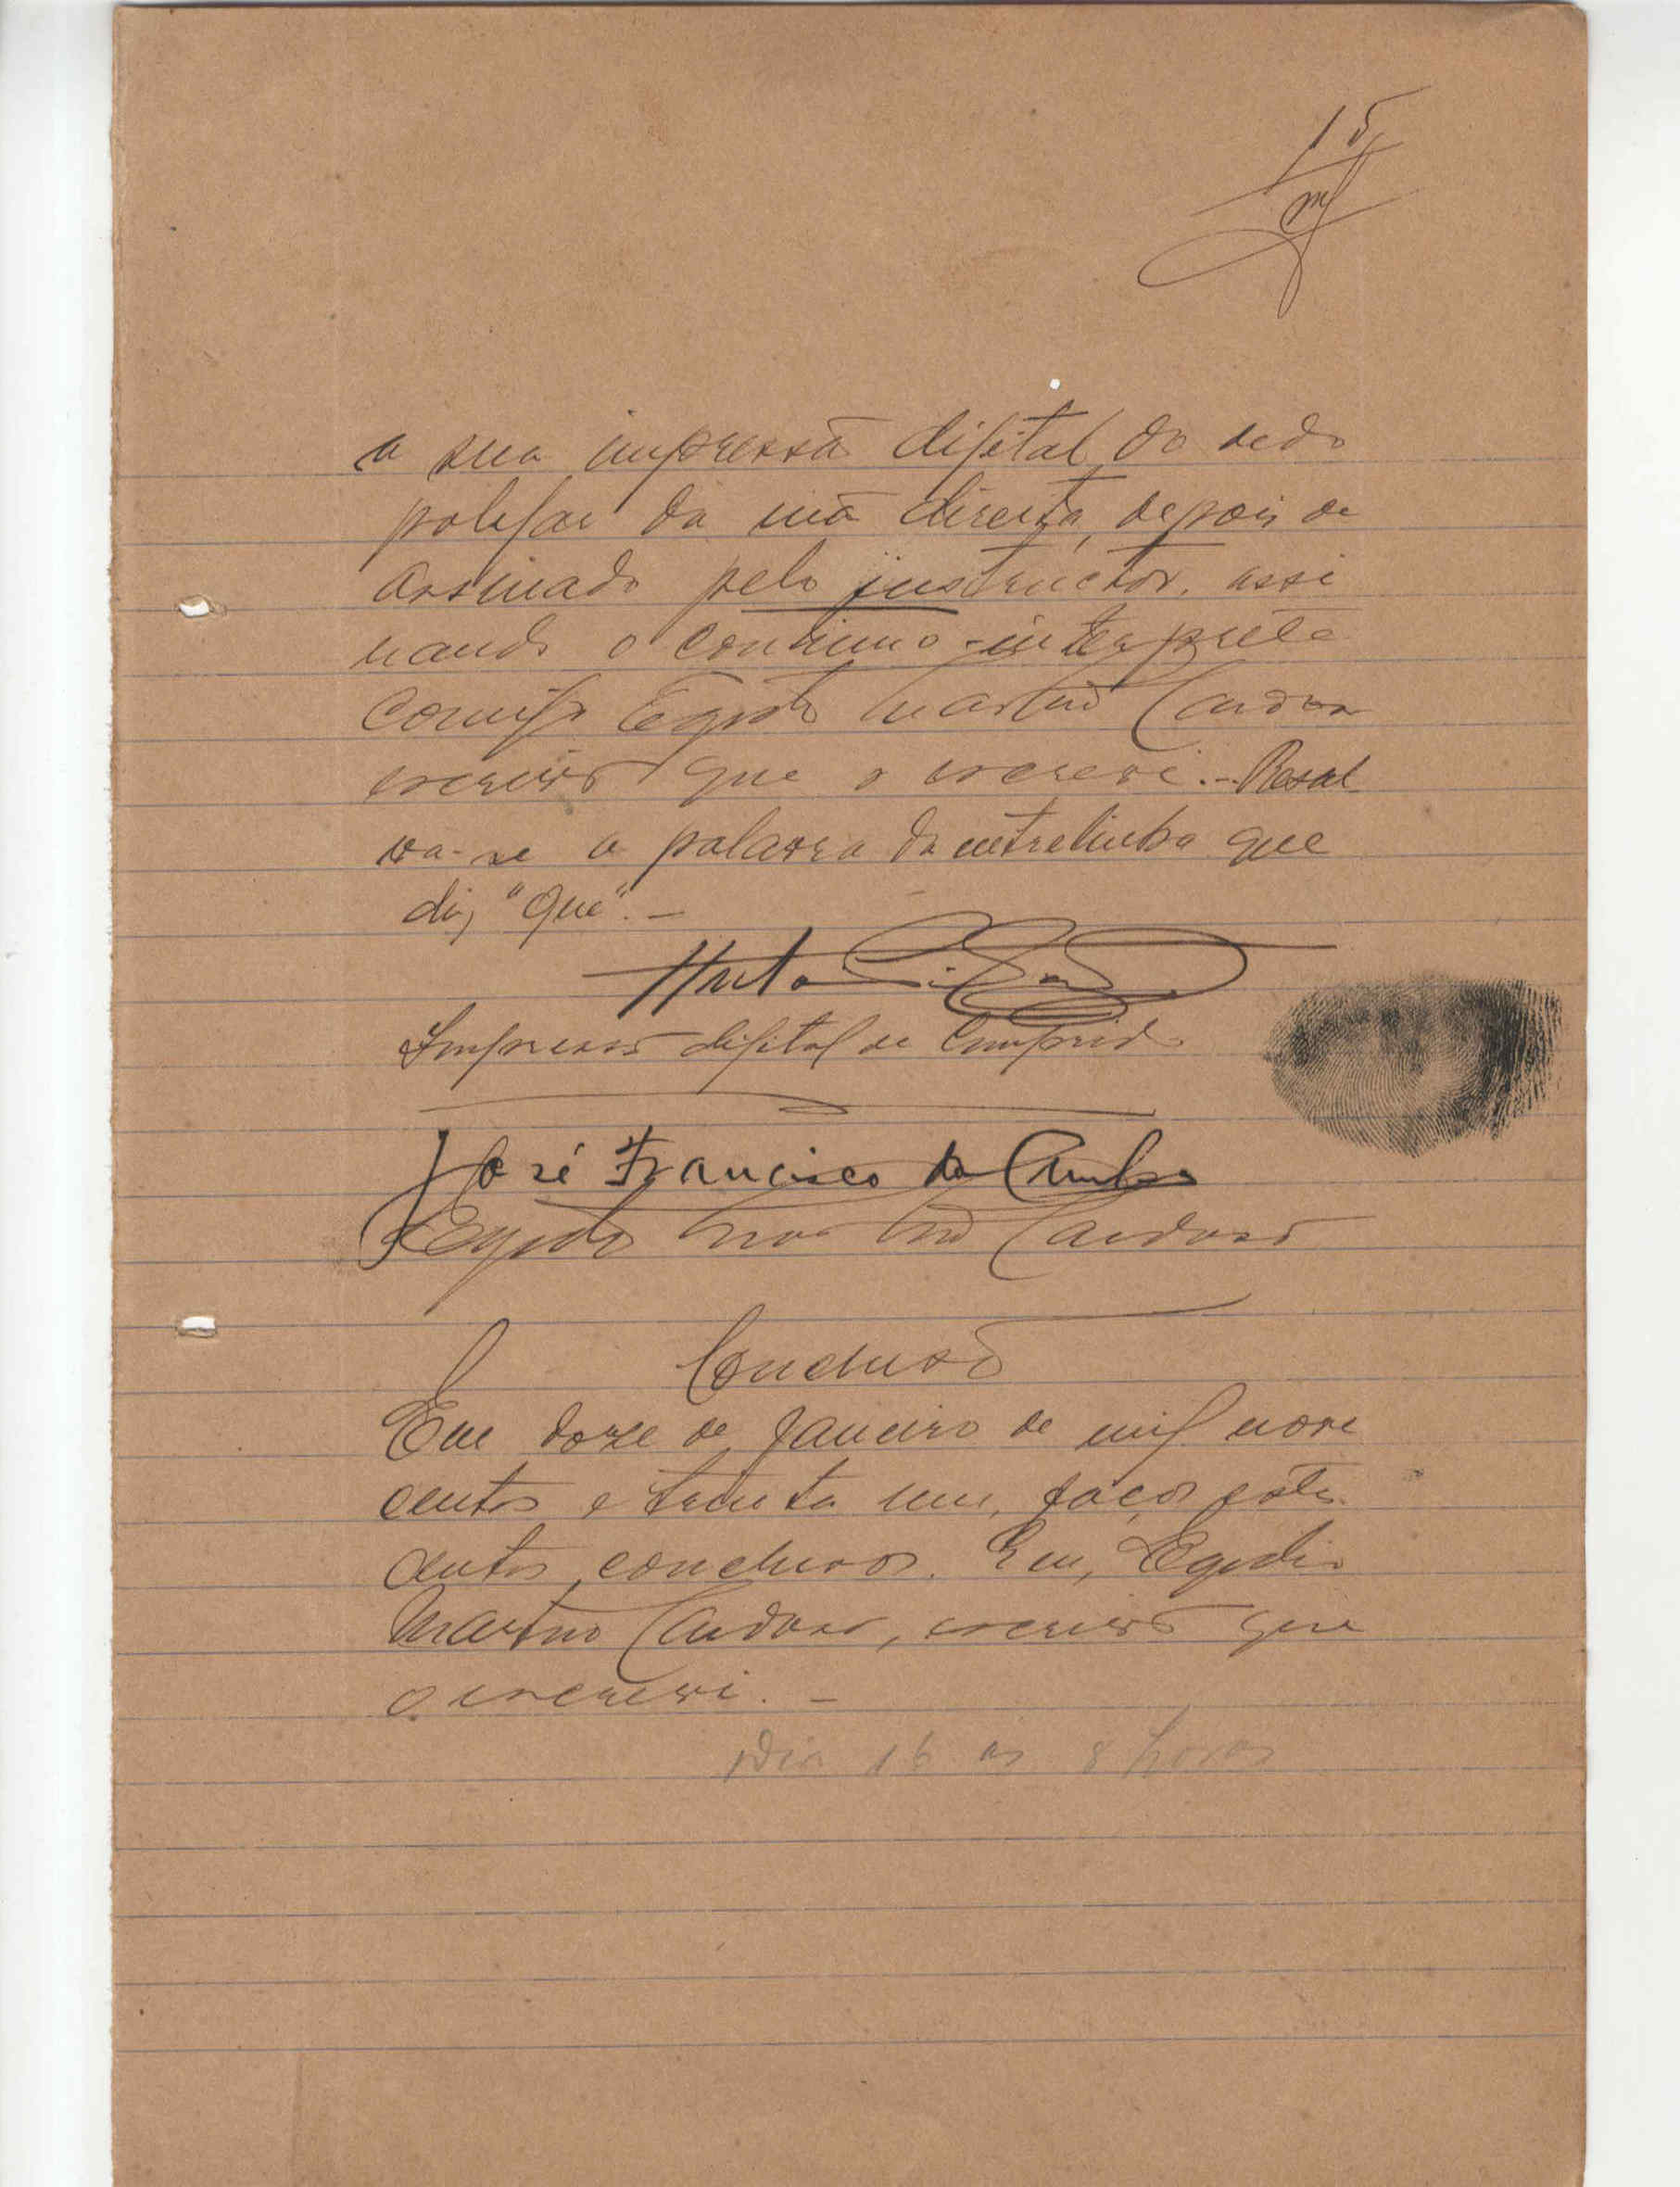 15
a sua impressã digital do dedo
polegar da mã direita, depois de
assinado pelo instructor, assi
nando o continuo-interprete
comigo Egydio Martins Cardoso
escrivão que o escrevi. - Resal
va-se a palavra da entrelinha que
diz "que". -
Impressão digital de Cumprido
José Francisco da Cunha
Egydio Martins Cardoso
Conclusão
Em doze de Janeiro de mil nove
centos e trinta um, faço estes
autos conclusos. Eu, Egydio
Martins Cardoso, escrivão que
o escrevi. -
Dia 16 as 8 horas